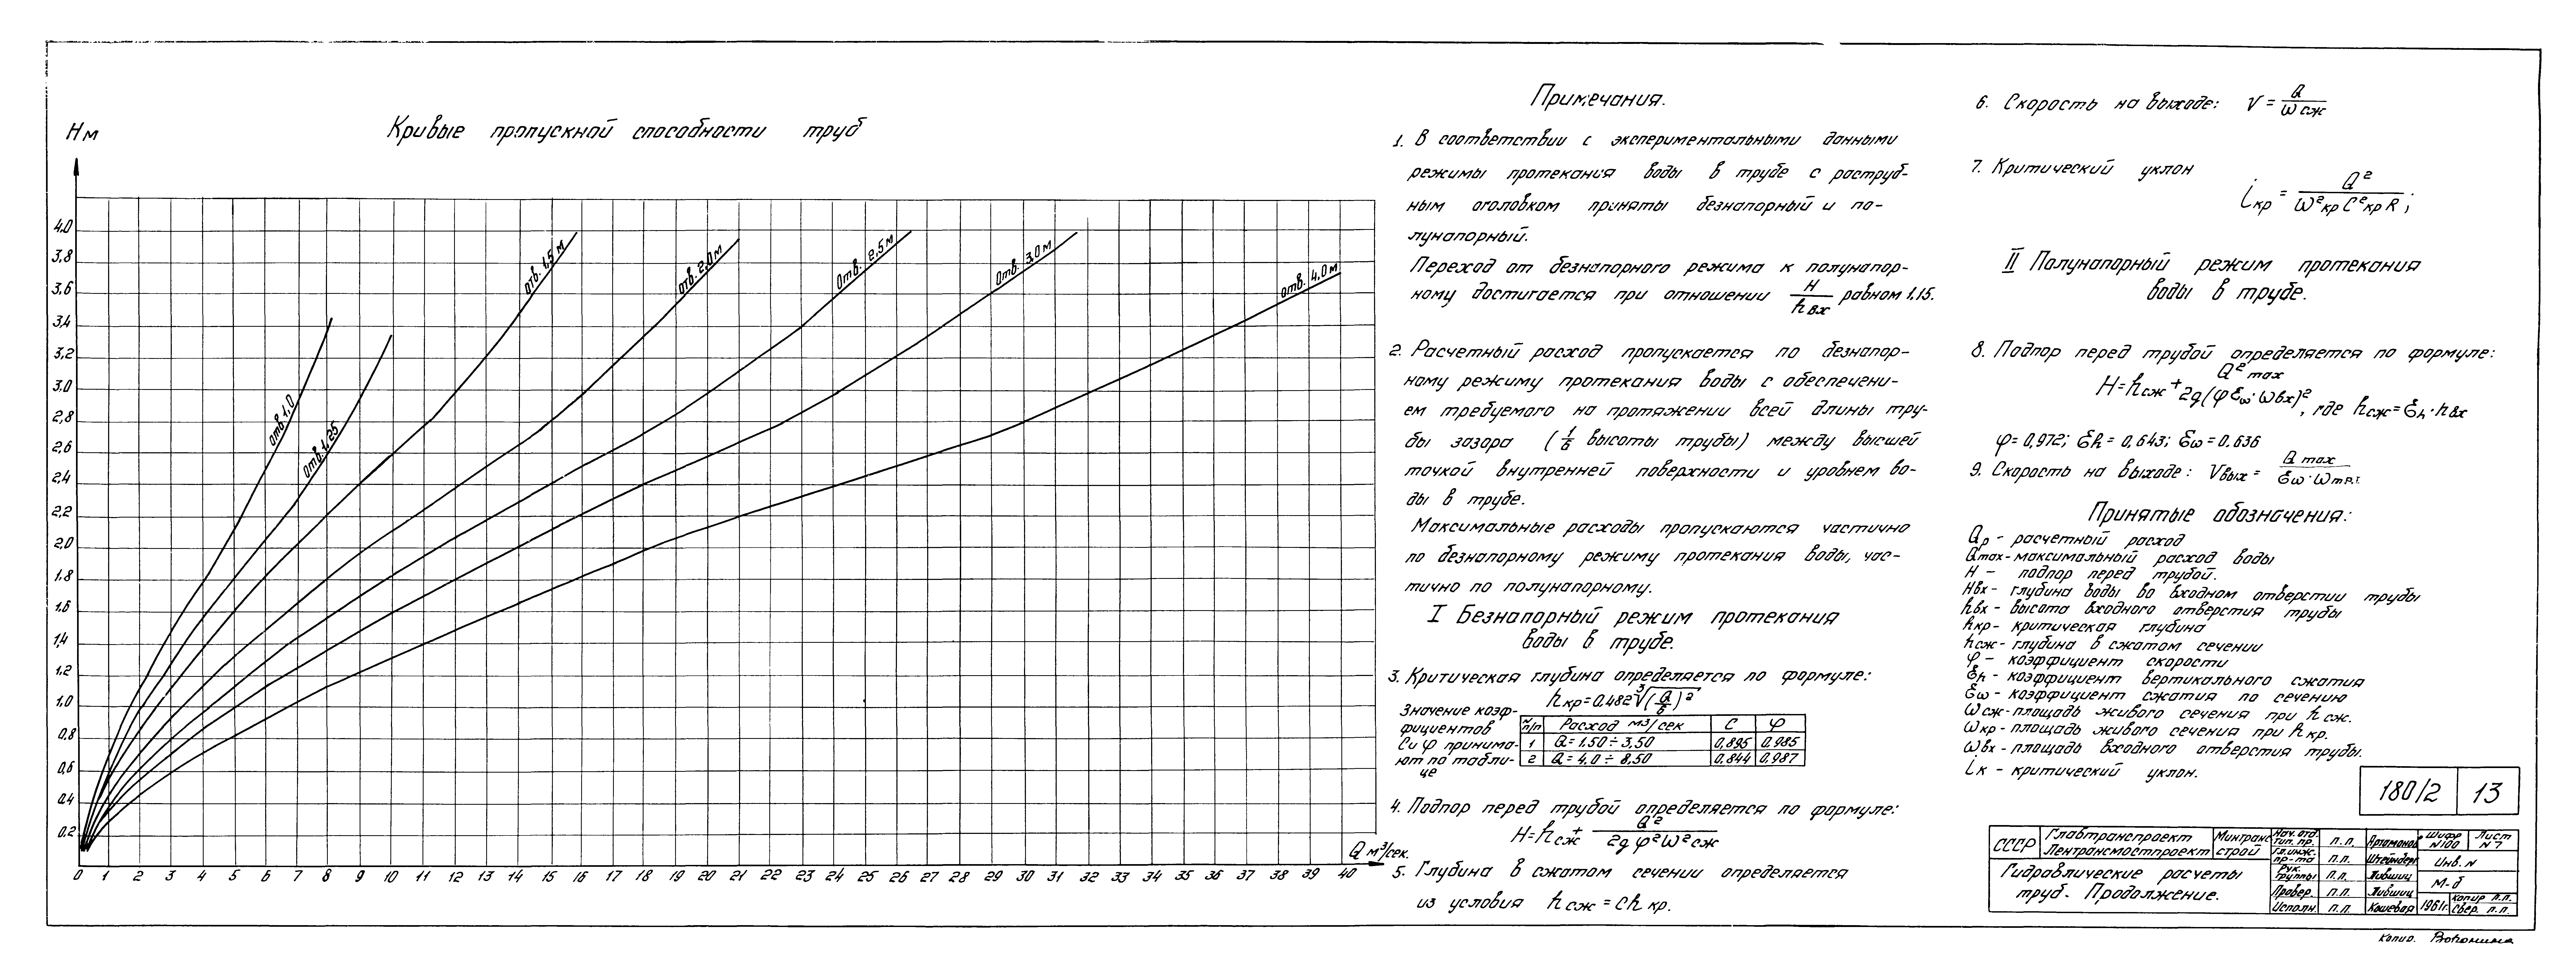 Кривые пропускной способности труб
Н м
4.0
3,8
3,6
3,4
3,2
3.0
2,8
2,6
2,4
2,2
2,0
1.8
1.6
1,4
1.2
1,0
0,8
0,6
0.4
0,2
0 1 2 3 4 5 6 7 8 9 10 11 12 13 14 15 16 17 18 19 20 21 22 23 24 25 26 27 28 29 30 31 32 33 34 35 36 37 38 39 40
Q м³/сек.
отв. 1,0
отв. 1,25
отв. 1,5 м
отв. 2,0м
отв. 2,5м
отв. 3,0м
отв. 4,0м
Примечания.
1. В соответствии с экспериментальными данными
режимы протекания воды в трубе с раструб-
ным оголовком приняты безнапорный и по-
лунапорный.
Переход от безнапорного режима к полунапор-
ному достигается при отношении H/hвх равном 1,15.
2. Расчетный расход пропускается по безнапор-
ному режиму протекания воды с обеспечени-
ем требуемого на протяжении всей длины тру-
бы зазора (1/6 высоты трубы) между высшей
точкой внутренней поверхности и уровнем во-
ды в трубе.
Максимальные расходы пропускаются частично
по безнапорному режиму протекания воды, час-
тично по полунапорному.
I Безнапорный режим протекания
воды в трубе.
3. Критическая глубина определяется по формуле:
hкр=0.482 ³√(Q/б)²
Значение коэф-
фициентов
С и φ принима-
ют по табли-
це
№ п/п Расход м3/сек С φ
1 Q=1.50÷3,50 0,895 0.985
2 Q=4,0÷8,50 0.844 0.987
4. Подпор перед трубой определяется по формуле:
H=hсж + Q²/2g φ²ω²сж
5. Глубина в сжатом сечении определяется
из условия hсж = Chкр.
6. Скорость на выходе: V = Q/ωсж
7. Критический уклон
iкр = Q²/ω²кр C²кр R ;
II Полунапорный режим протекания
воды в трубе.
8. Подпор перед трубой определяется по формуле:
H=hсж + Q²max/2g(φ Ɛω·ωвх)², где hсж=Ɛh·hвх
φ=0,972; Ɛh=0,643; Ɛω=0.636
9. Скорость на выходе: Vвых = Q max/Ɛω·ωтр.
Принятые обозначения:
Qр - расчетный расход
Qmax - максимальный расход воды
H - подпор перед трубой.
Hвх - глубина воды во входном отверстии трубы
hвх - высота входного отверстия трубы
hкр - критическая глубина
hсж - глубина в сжатом сечении
φ - коэффициент скорости
Ɛh - коэффициент вертикального сжатия
Ɛω - коэффициент сжатия по сечению
ωсж - площадь живого сечения при hсж.
ωкр - площадь живого сечения при hкр.
ωвх - площадь входного отверстия трубы.
iк - критический уклон.
180/2 13
СССР Главтранспроект Лентрансмостпроект Минтранс строй
Гидравлические расчеты
труб. Продолжение.
Нач. отд. тип. пр. п.п. Артамонов
Гл. инж. пр-та п.п. Штейнберг
Рук. группы п.п. Лившиц
Провер. п.п. Лившиц
Исполн. п.п. Кошевая
Шифр N100 Лист N 7
Инв. N
М-б
1961г. Копир. п.п.
Свер. п.п.
Копир. Воронина